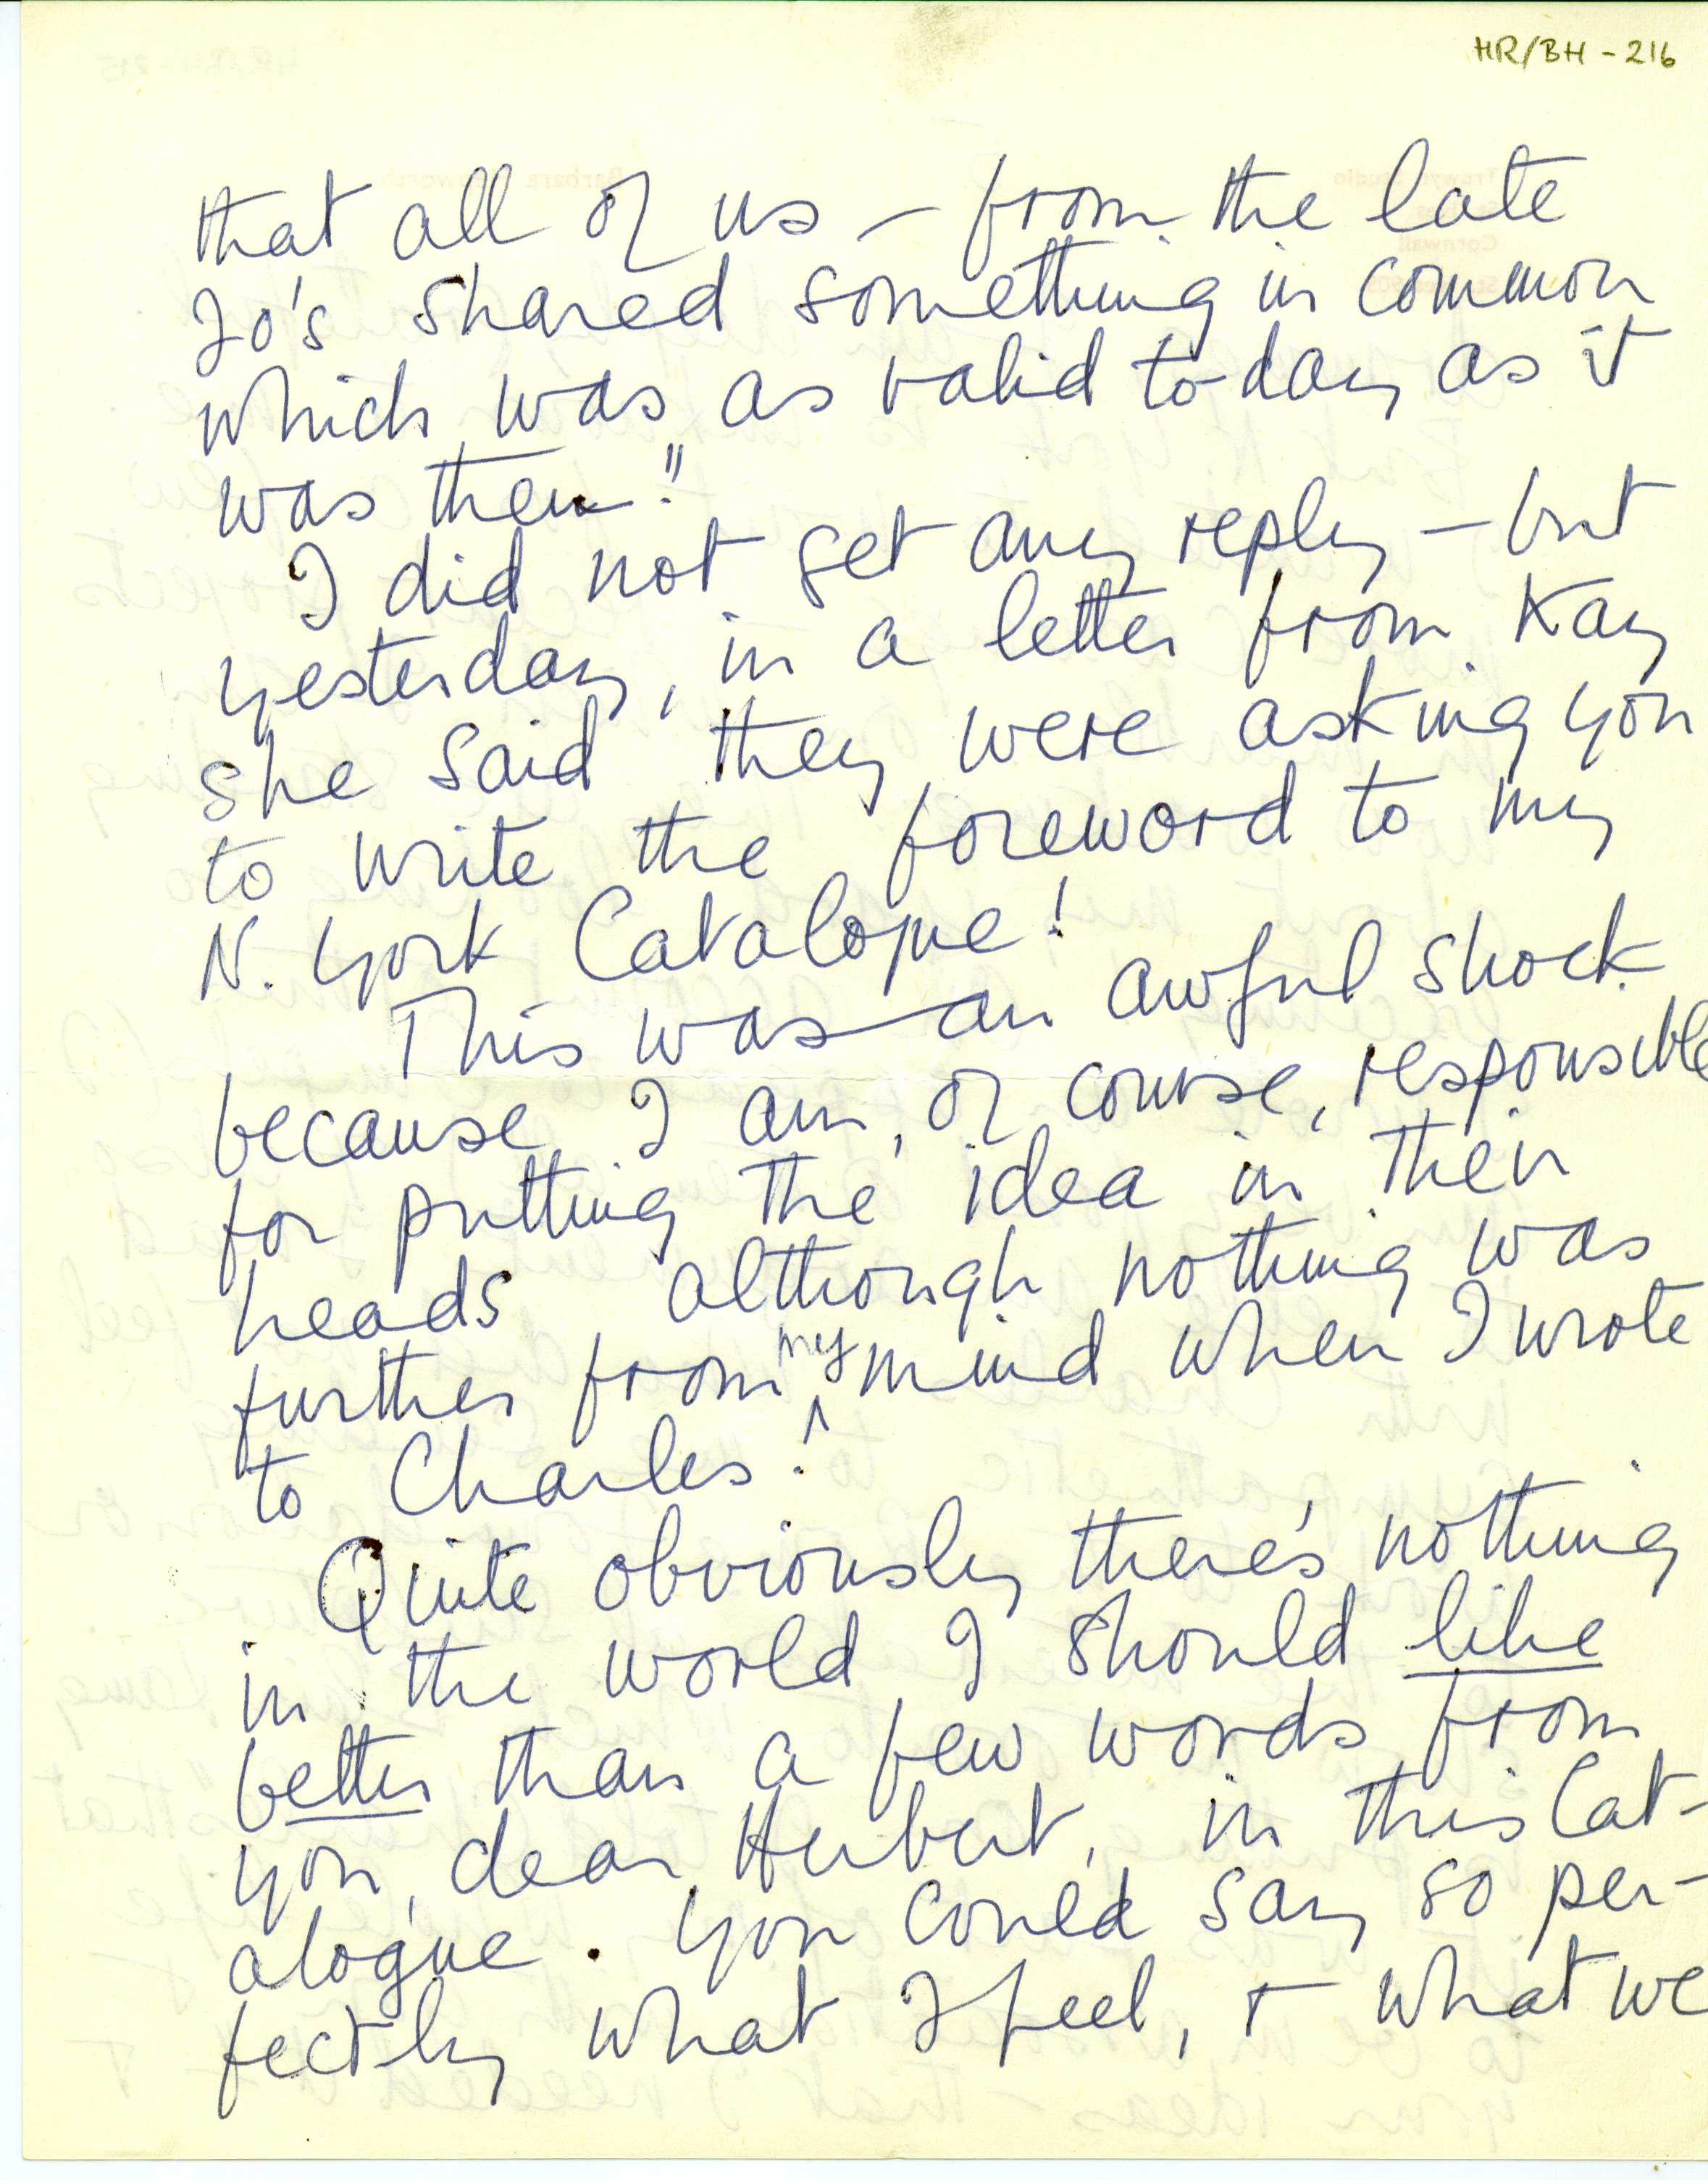 HR/BH - 216
that all of us – from the late
20's shared something in common
which was as valid to-day as it
was then!"
I did not get any reply – but
yesterday, in a letter from Kay
she said they were asking you
to write the foreword to my
N. York Catalogue!
This was an awful shock
because I am, of course, responsible
for putting the idea in their
heads although nothing was
further from my mind when I wrote
to Charles!
Quite obviously there's nothing
in the world I should like
better than a few words from
you, dear Herbert, in this Cat-
alogue. You could say so per-
fectly what I feel, + what we